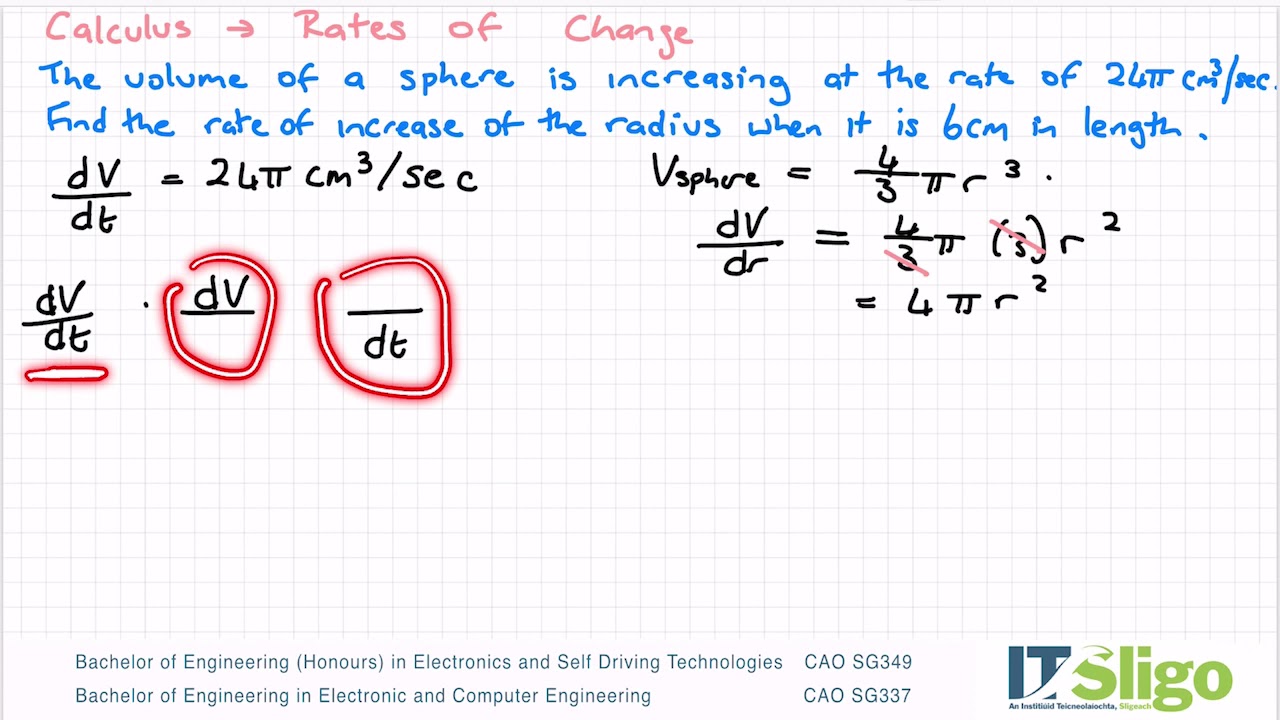 Calculus → Rates of Change
The volume of a sphere is increasing at the rate of 24π cm³/sec.
Find the rate of increase of the radius when it is 6cm in length.
dV/dt = 24π cm³/sec
Vsphere = 4/3 πr³.
dV/dr = 4/3 π (3) r²
= 4πr²
dV/dt . dV/ /dt
Bachelor of Engineering (Honours) in Electronics and Self Driving Technologies CAO SG349
Bachelor of Engineering in Electronic and Computer Engineering CAO SG337
IT Sligo
An Institiúid Teicneolaíochta, Sligeach